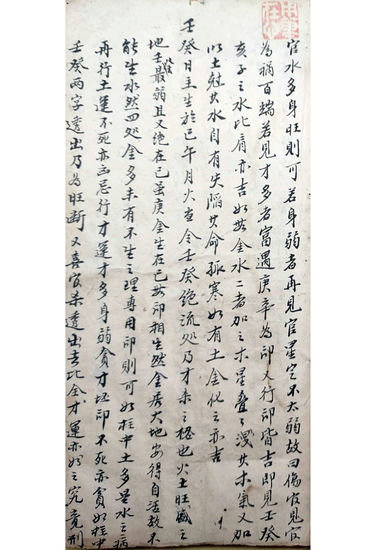 官水多身旺則可若身弱者再見官星定不太弱故曰傷官見官
為禍百端若見才多者富遇庚辛為印又行印皆吉即見壬癸
亥子之水比肩亦吉如無金水二者加之木星疊之洩其木氣又加
以土尅其水自有失陷其命孤寒如有土金化之亦吉
壬癸日主生於巳午月火當令壬癸絕流処乃才杀之格也火土旺盛之
地壬癸最弱且又绝在巳虽庚金生在巳無印相生然金居火地安得自活救水
能生水然四処金多未有不生之理專用印則可如柱中土多是水之病
再行土運不死亦凶忌行才運才多身弱貪才坏印不死亦貪如柱中
壬癸兩字透出乃為旺断又喜官杀透出去比全才運亦好之究竟刑